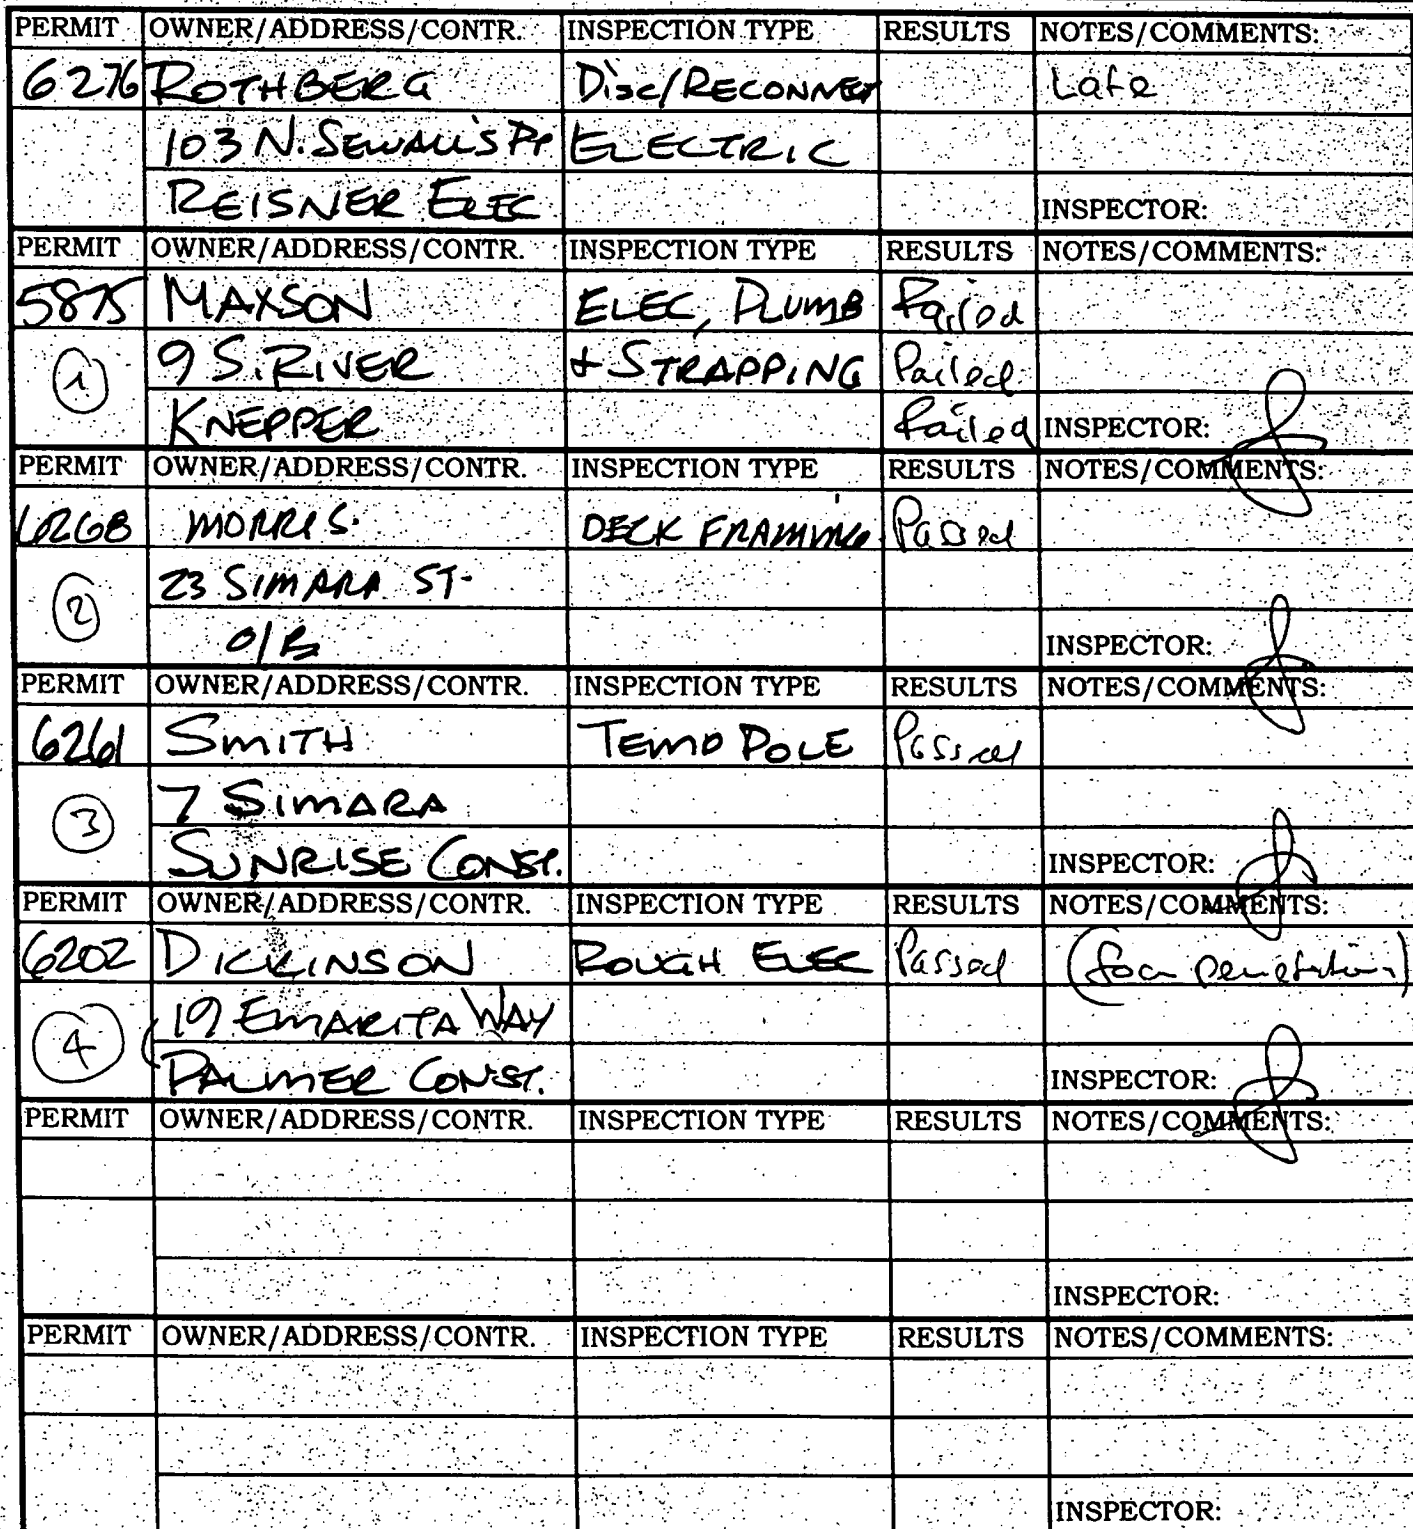 PERMIT OWNER/ADDRESS/CONTR. INSPECTION TYPE RESULTS NOTES/COMMENTS:
6276 ROTHBERG Disc/RECONNECT Late
103 N. SEWALL'S PT ELECTRIC
REISNER ELEC INSPECTOR:
PERMIT OWNER/ADDRESS/CONTR. INSPECTION TYPE RESULTS NOTES/COMMENTS:
5875 MAXSON ELEC, PLUMB Failed
1 9 S. RIVER + STRAPPING Failed
KNEPPER Failed INSPECTOR:
PERMIT OWNER/ADDRESS/CONTR. INSPECTION TYPE RESULTS NOTES/COMMENTS:
6268 MORRIS DECK FRAMING Passed
2 23 SIMARA ST.
O/B INSPECTOR:
PERMIT OWNER/ADDRESS/CONTR. INSPECTION TYPE RESULTS NOTES/COMMENTS:
6261 SMITH TEMP POLE Passed
3 7 SIMARA
SUNRISE CONST. INSPECTOR:
PERMIT OWNER/ADDRESS/CONTR. INSPECTION TYPE RESULTS NOTES/COMMENTS:
6202 DICKINSON ROUGH ELEC Passed
4 19 EMARITA WAY
PALMER CONST. INSPECTOR:
PERMIT OWNER/ADDRESS/CONTR. INSPECTION TYPE RESULTS NOTES/COMMENTS:
INSPECTOR:
PERMIT OWNER/ADDRESS/CONTR. INSPECTION TYPE RESULTS NOTES/COMMENTS:
INSPECTOR: